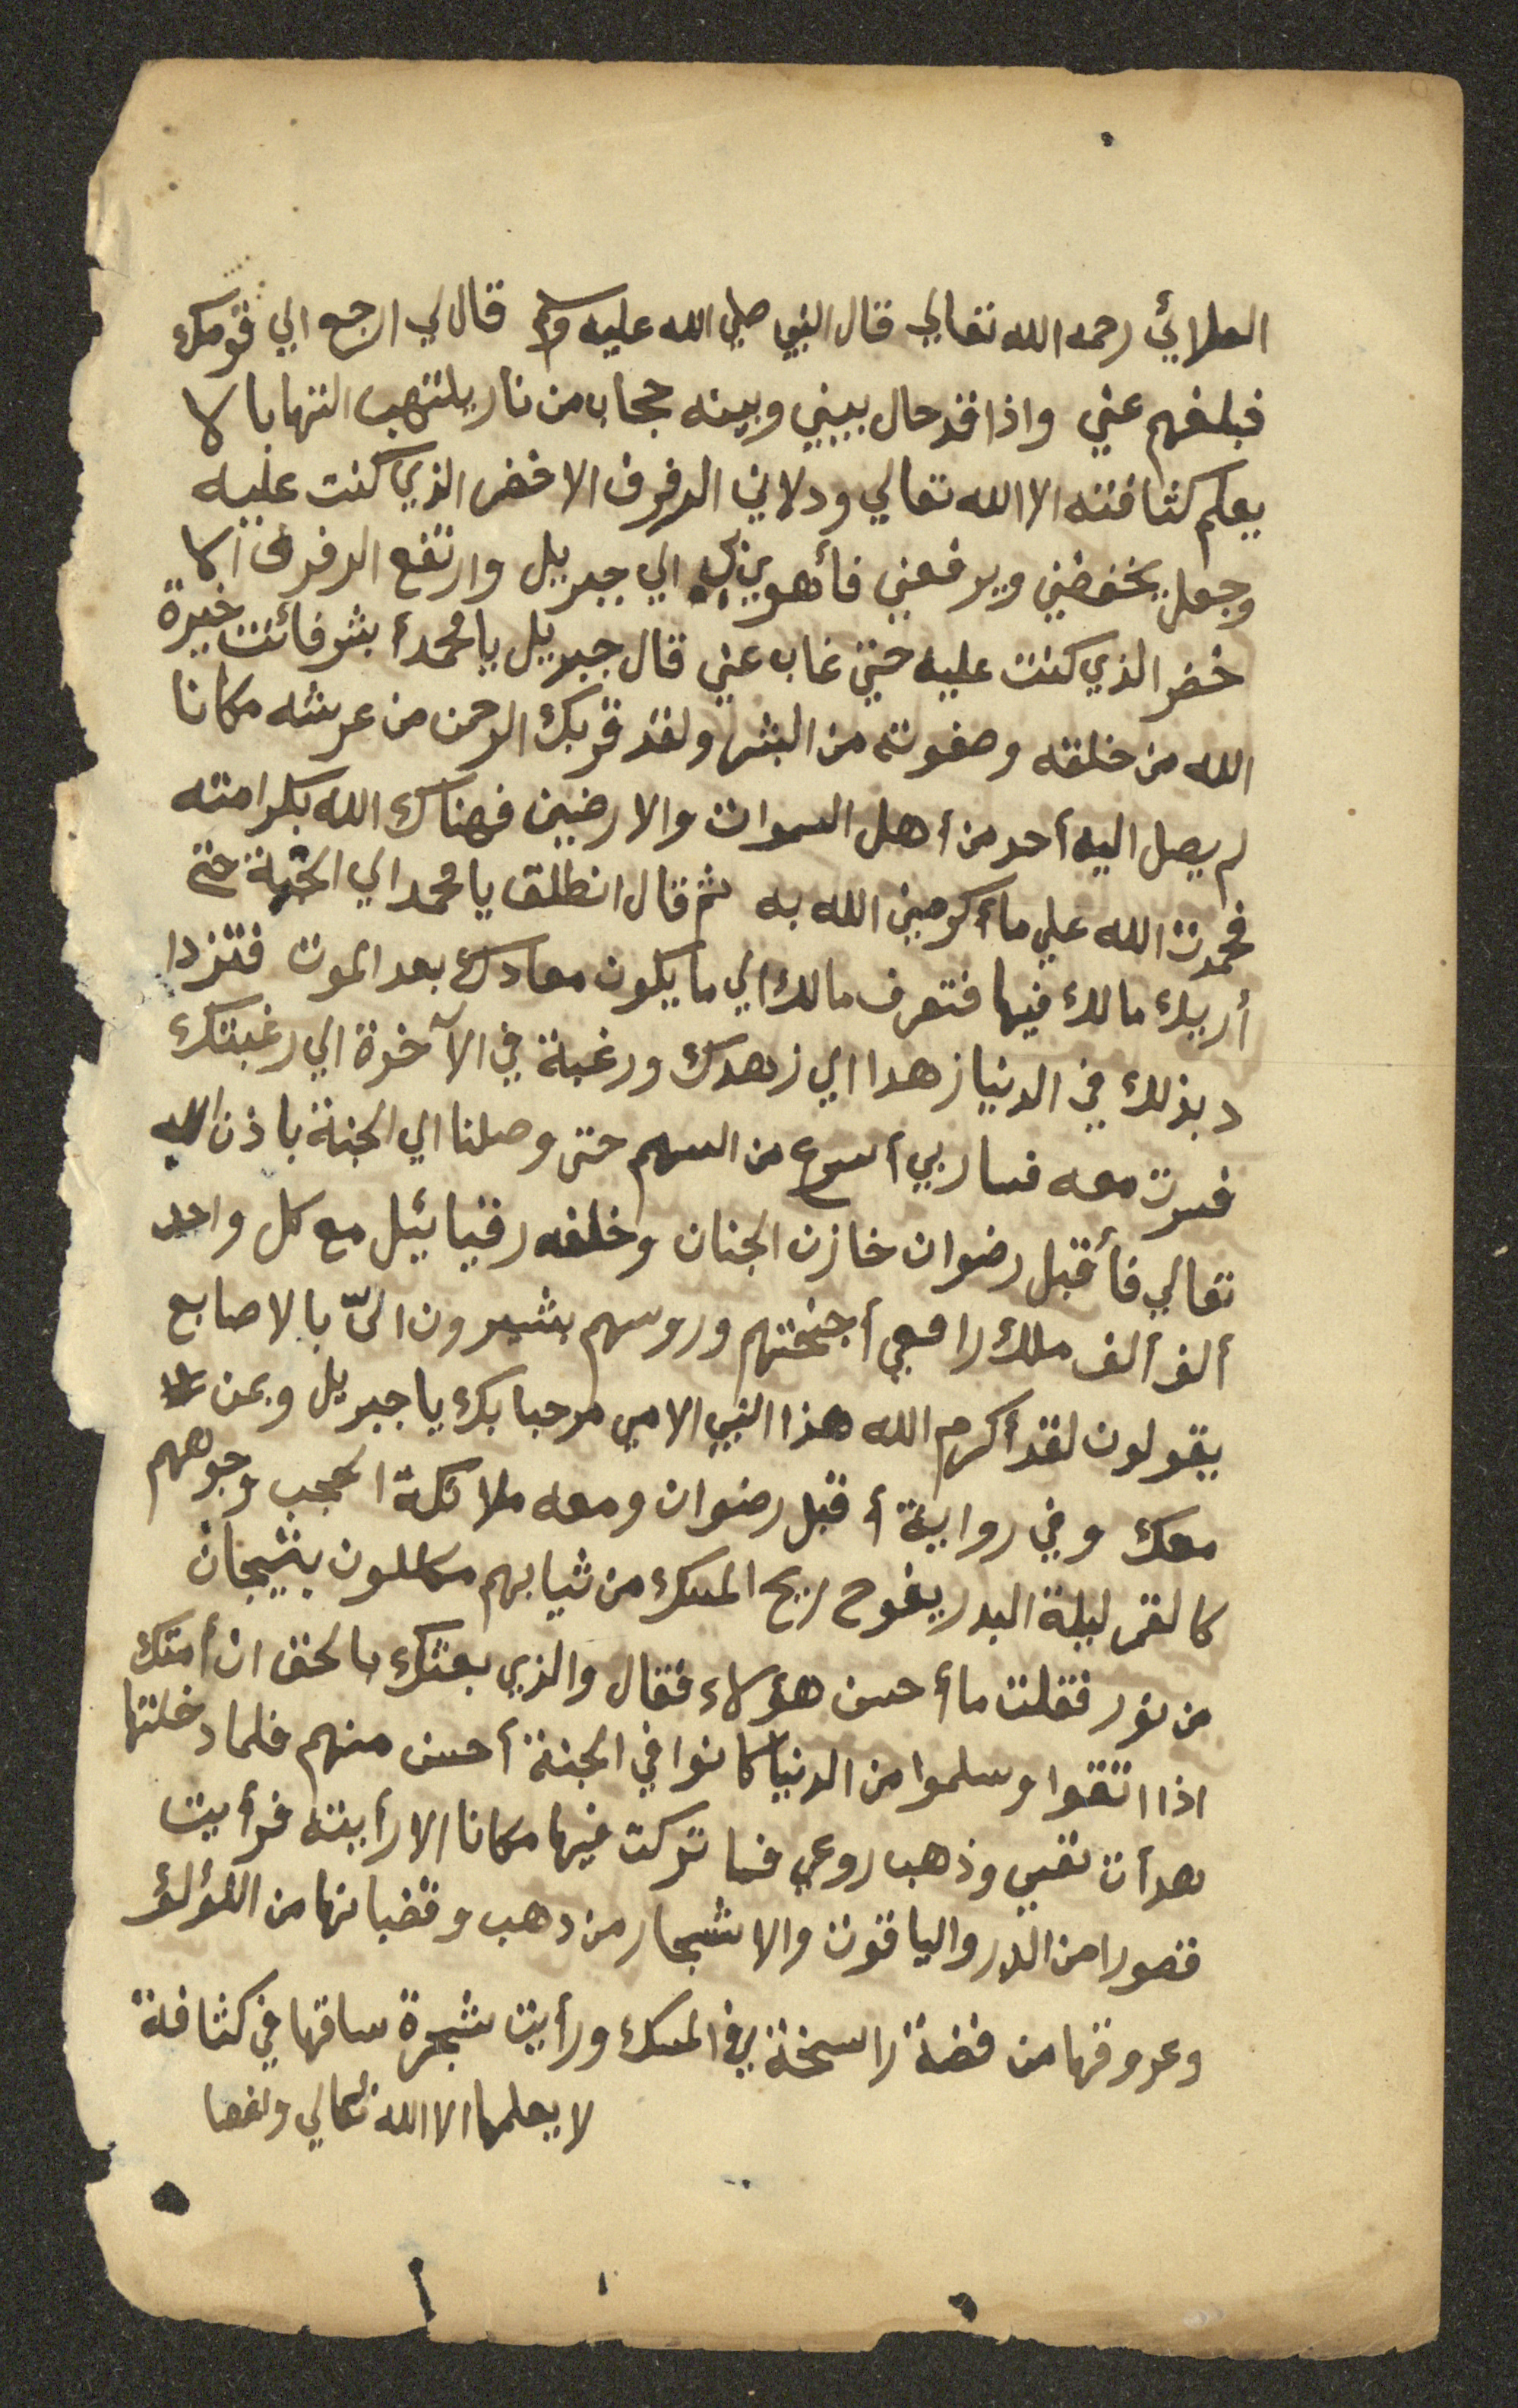 العلائي رحمه الله تعالي قال النبي صلي الله عليه وسلم قال لي ارجع الي قومك
فبلغهم عني واذا قد حال بيني وبينه حجاب من نار يلتهب التهابا لا
يعلم كثافته الا الله تعالي ودلاني الرفرف الاخضر الذي كنت عليه
وجعل يخفضني ويرفعني فأهوي بي الي جبريل وارتفع الرفرف الا
خضر الذي كنت عليه حتي غاب عني قال جبريل يا محمد أبشر فائنت خيرة
الله من خلقه وصفوته من البشر ولقد قربك الرحمن من عرشه مكانا
لم يصل اليه أحد من أهل السموات والارضين فهناك الله بكرامته
فحمدت الله علي ما أكرمني الله به ثم قال انطلق يا محمد الي الجنة حتي
أريك مالك فيها فتعرف مالك الي ما يكون معادك بعد الموت فتزدا
د بذلك في الدنيا زهدا الي زهدك ورغبة في الآخرة الي رغبتك
فسرت معه فسار بي أسرع من السهم حتى وصلنا الي الجنة باذن الله
تعالي فأقبل رضوان خازن الجنان وخلفه رقيائيل مع كل واحد
ألف ألف ملك رافعي أجنحتهم وروسهم يشيرون اليّ بالاصابع
يقولون لقد أكرم الله هذا النبي الامي مرحبا بك يا جبريل وبمن
معك وفي رواية أقبل رضوان ومعه ملائكة الحجب وجوههم
كالقمر ليلة البدر يفوح ريح المسك من ثيابهم مكللون بتيجان
من نور فقلت ما أحسن هؤلاء فقال والذي بعثك بالحق ان أمتك
اذا اتقوا وسلموا من الدنيا كانوا في الجنة أحسن منهم فلما دخلتها
هدأت نفسي وذهب روعي فما تركت فيها مكانا الا رأيته فرأيت
قصورا من الدر والياقوت والاشجار من دهب وقضبانها من اللؤلؤ
وعروقها من فضة راسخة في المسك ورأيت شجرة ساقها في كثافة
لا يعلمها الا الله تعالي